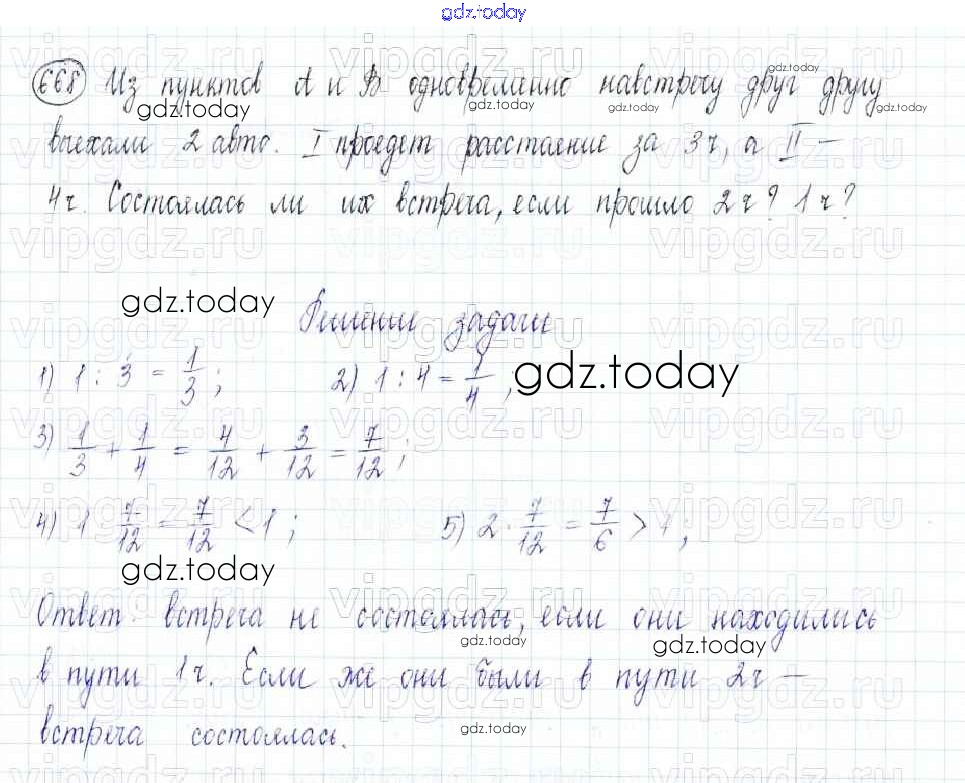 gdz.today
668 Из пунктов А и В одновременно навстречу друг другу
выехали 2 авто. I проедет расстояние за 3ч, а II –
4ч. Состоялась ли их встреча, если прошло 2ч? 1ч?
gdz.today
Решение задачи
1) 1 : 3 = 1/3; 2) 1 : 4 = 1/4;
gdz.today
3) 1/3 + 1/4 = 4/12 + 3/12 = 7/12;
4) 1 · 7/12 = 7/12 < 1; 5) 2 · 7/12 = 7/6 > 1;
gdz.today
Ответ: встреча не состоялась, если они находились
в пути 1ч. Если же они были в пути 2ч –
встреча состоялась.
gdz.today
vipgdz.ru